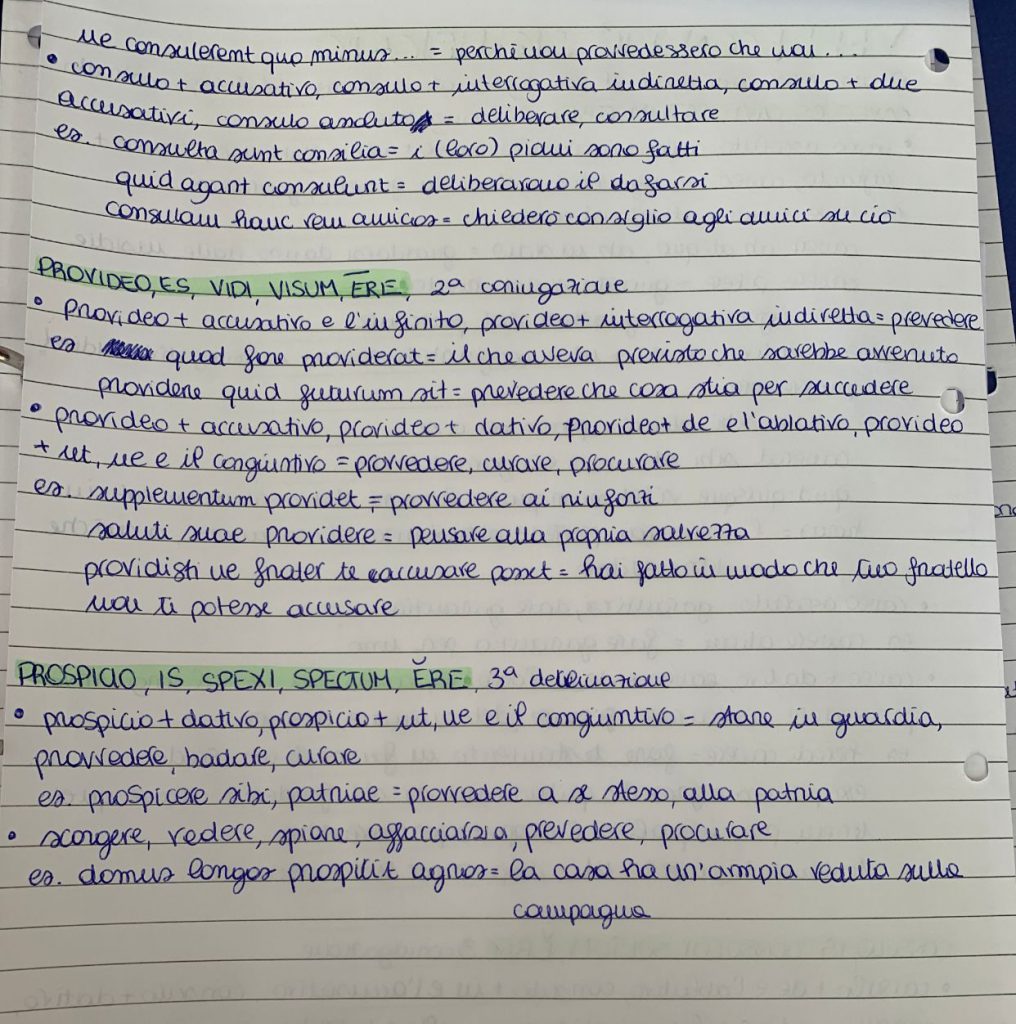 ne consulerent quo minus... = perché non provvedessero che non ...
• consulo + accusativo, consulo + interrogativa indiretta, consulo + due
accusativi, consulo assoluto = deliberare, consultare
es. consulta sunt consilia = i (loro) piani sono fatti
quid agant consulunt = deliberarono il da farsi
consulam hanc rem amicos = chiederò consiglio agli amici su ciò
PROVIDEO, ES, VIDI, VISUM, ĒRE, 2ª coniugazione
• provideo + accusativo e l'infinito, provideo + interrogativa indiretta = prevedere
es quod fore providerat = il che aveva previsto che sarebbe avvenuto
providere quid futurum sit = prevedere che cosa stia per succedere
• provideo + accusativo, provideo + dativo, provideo + de e l'ablativo, provideo
+ ut, ne e il congiuntivo = provvedere, curare, procurare
es. supplementum providet = provvedere ai rinforzi
saluti suae providere = pensare alla propria salvezza
providisti ne frater te accusare posset = hai fatto in modo che tuo fratello
non ti potesse accusare
PROSPICIO, IS, SPEXI, SPECTUM, ĔRE, 3ª declinazione
• prospicio + dativo, prospicio + ut, ne e il congiuntivo = stare in guardia,
provvedere, badare, curare
es. prospicere sibi, patriae = provvedere a se stesso, alla patria
• scorgere, vedere, spiare, affacciarsi a, prevedere, procurare
es. domus longos prospicit agros = la casa ha un'ampia veduta sulla
campagna